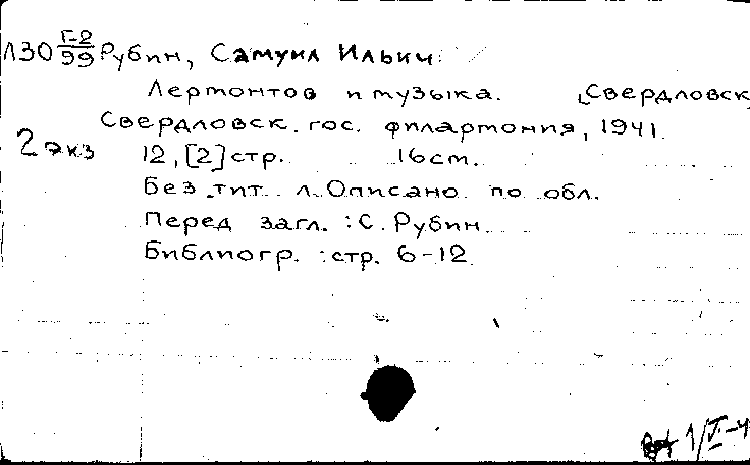 Л30 Г-2/99 Рубин, Самуил Ильич
Лермонтов и музыка. [Свердловск
Свердловск. гос. филармония, 1941.
2 экз 12, [2] стр. 16 см.
Без тит. л. Описано по обл.
Перед загл.: С. Рубин
Библиогр.: стр. 6-12
1/VI-4